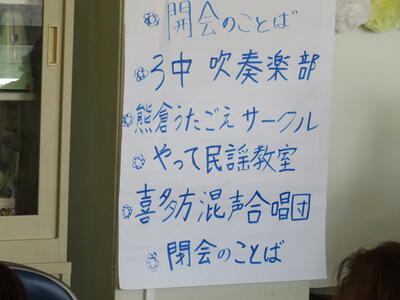 開会のことば
3中 吹奏楽部
熊倉うたごえサークル
やって民謡教室
喜多方混声合唱団
閉会のことば